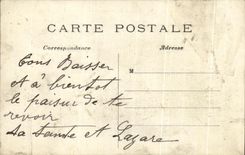 CARTE POSTALE
Correspondance
Adresse
Bons Baiser
M
et à bientot
le plaisir de te
revoir
La tante et Lazare